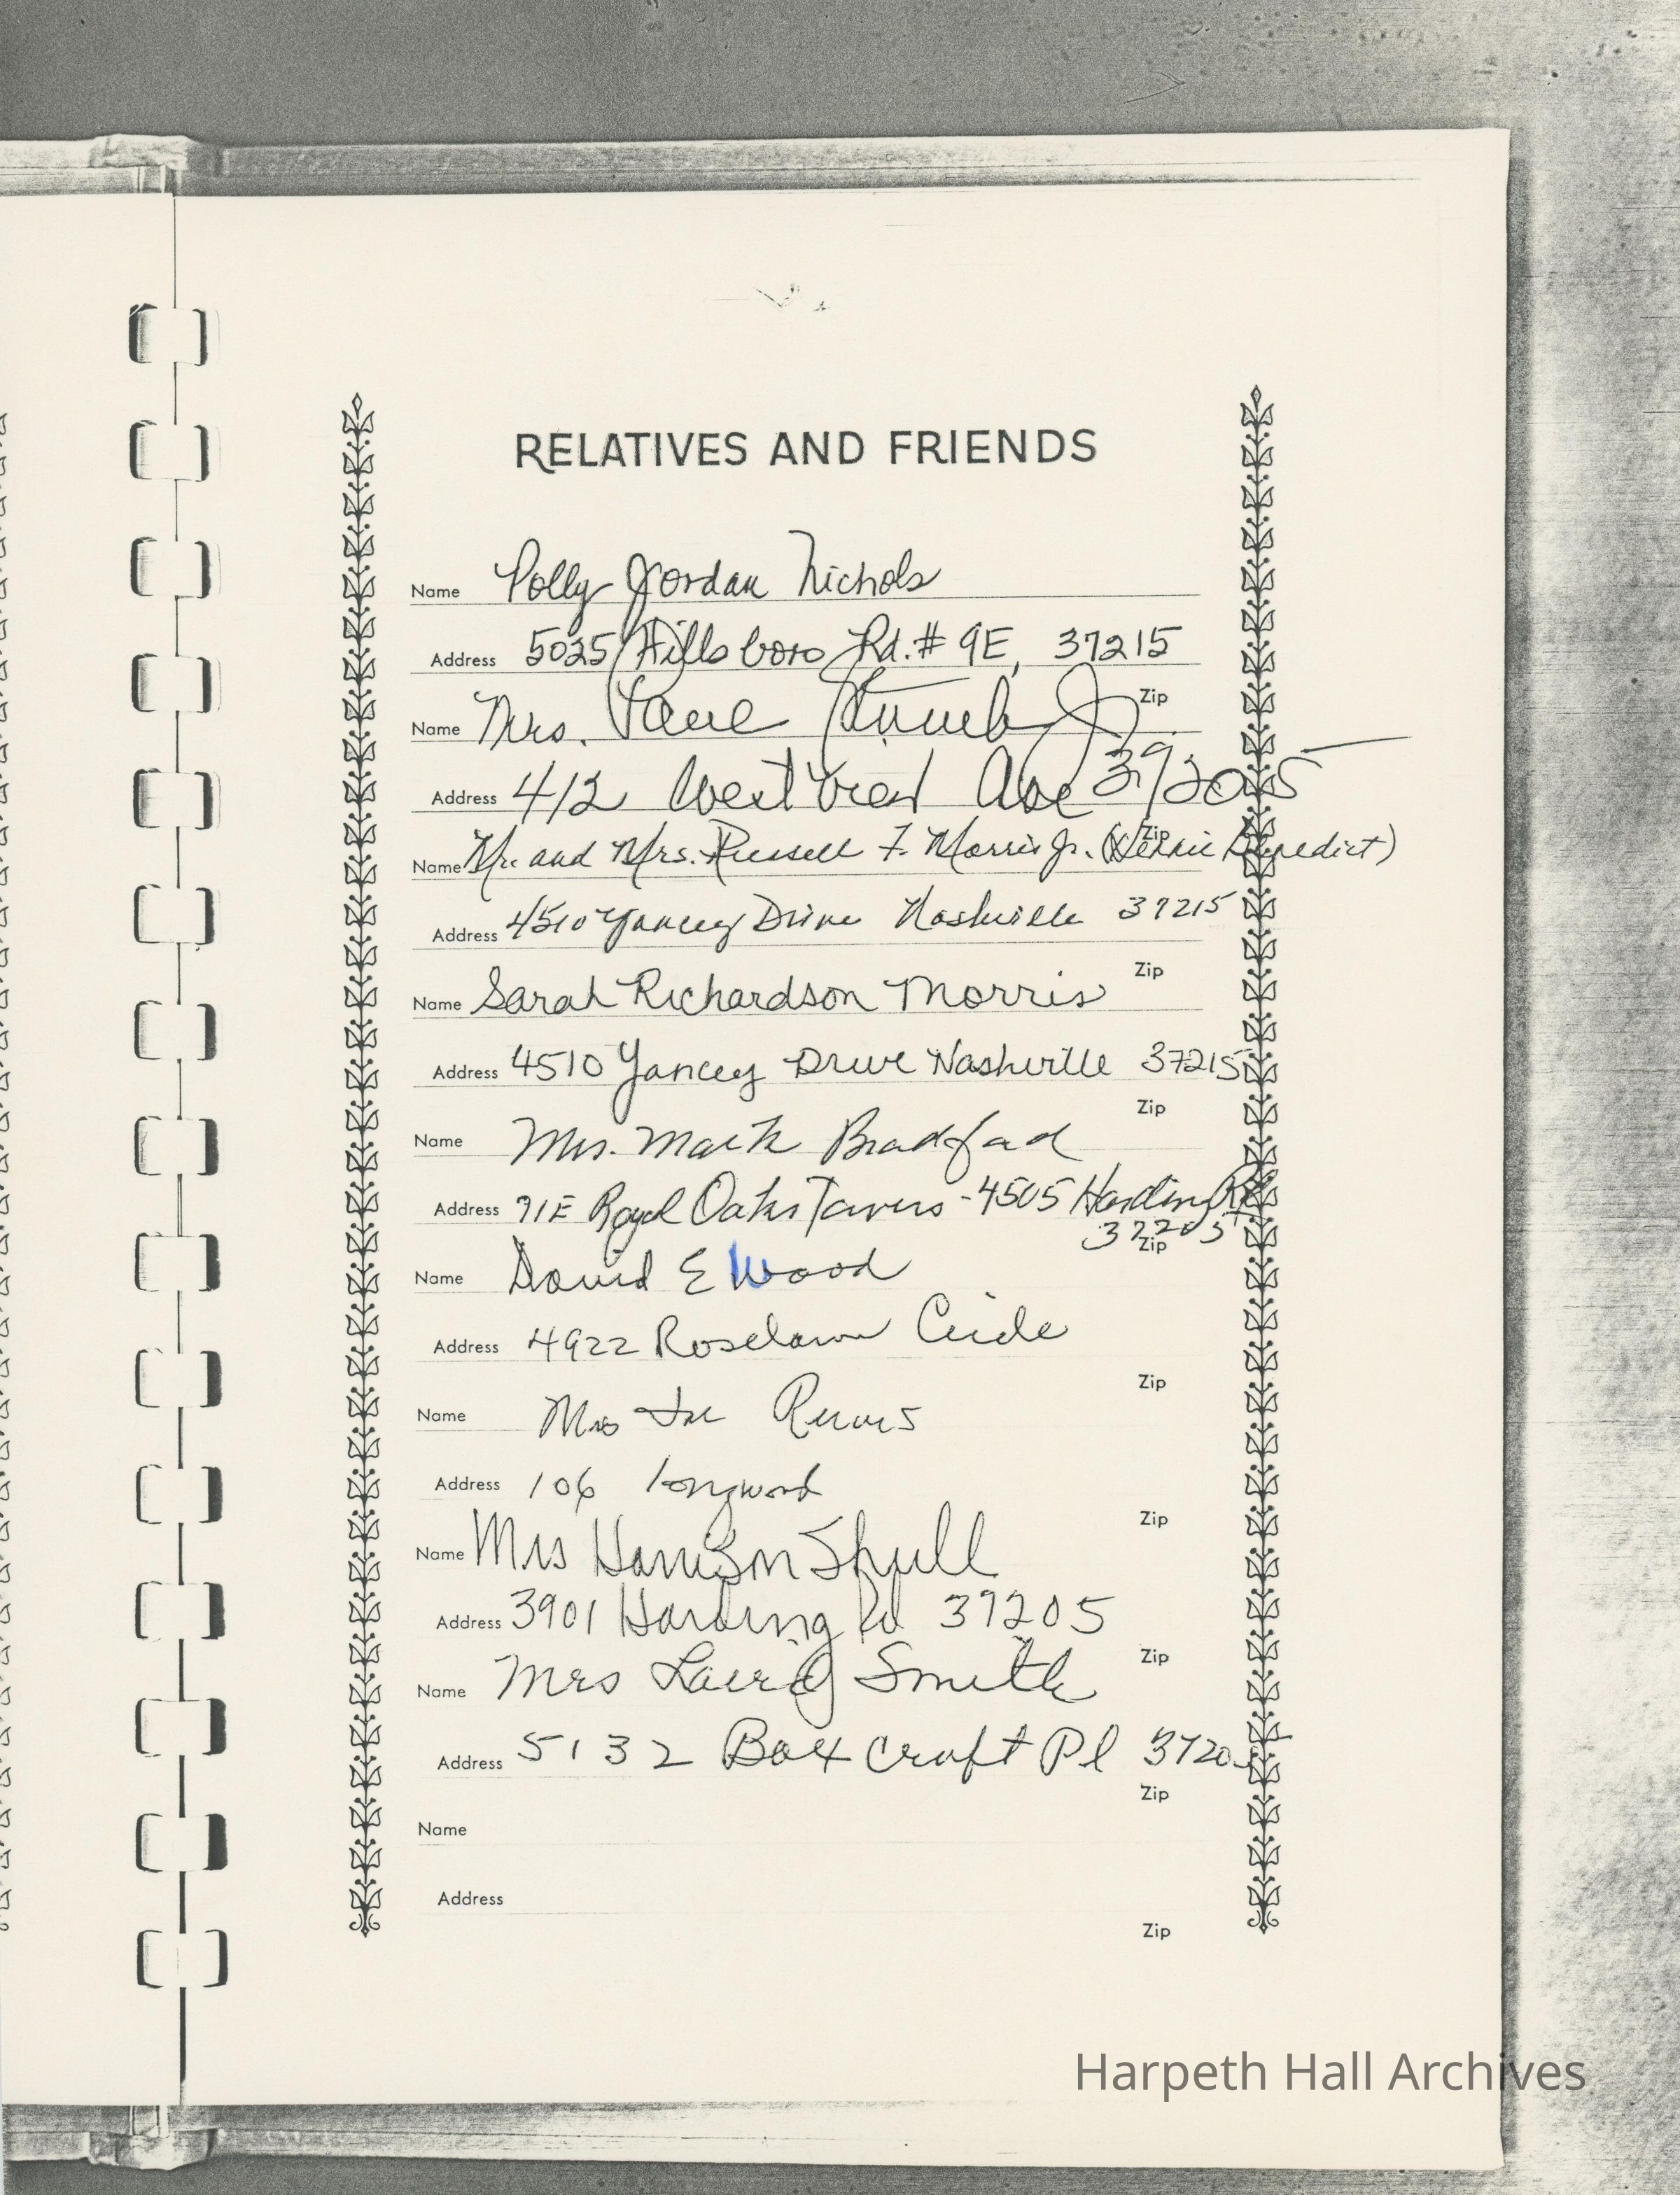 RELATIVES AND FRIENDS
Name Polly Jordan Nichols
Address 5025 Hillsboro Rd. # 9E, 37215
Zip
Name Mrs.
Address 412 West View Ave 37205
Zip
Name Mr. and Mrs. Russell F. Morris Jr. ( Benedict)
Address 4510 Yancey Drive Nashville 37215
Zip
Name Sarah Richardson Morris
Address 4510 Yancey Drive Nashville 37215
Zip
Name Mrs. Mark Bradford
Address 91E Royal Oaks Towers - 4505 Harding Rd
37205
Zip
Name David E Wood
Address 4922 Roselawn Circle
Zip
Name Mrs
Address 106 Longwood
Zip
Name Mrs Harrison Shull
Address 3901 Harding Rd 37205
Zip
Name Mrs Laird Smith
Address 5132 Boxcroft Pl 37205
Zip
Name
Address
Zip
Harpeth Hall Archives